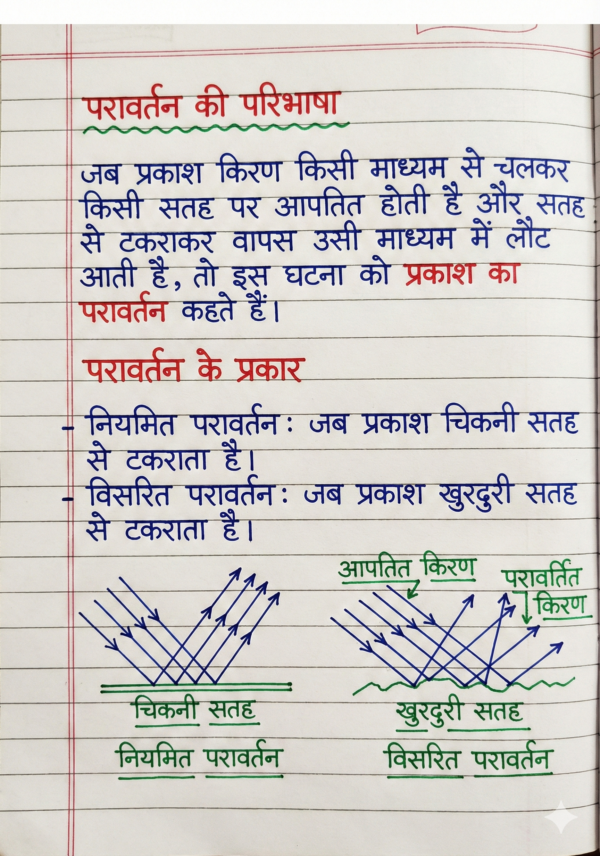 परावर्तन की परिभाषा
जब प्रकाश किरण किसी माध्यम से चलकर
किसी सतह पर आपतित होती है और सतह
से टकराकर वापस उसी माध्यम में लौट
आती है, तो इस घटना को प्रकाश का
परावर्तन कहते हैं।
परावर्तन के प्रकार
- नियमित परावर्तन: जब प्रकाश चिकनी सतह
से टकराता है।
- विसरित परावर्तन: जब प्रकाश खुरदुरी सतह
से टकराता है।
आपतित किरण
परावर्तित
किरण
चिकनी सतह
खुरदुरी सतह
नियमित परावर्तन
विसरित परावर्तन